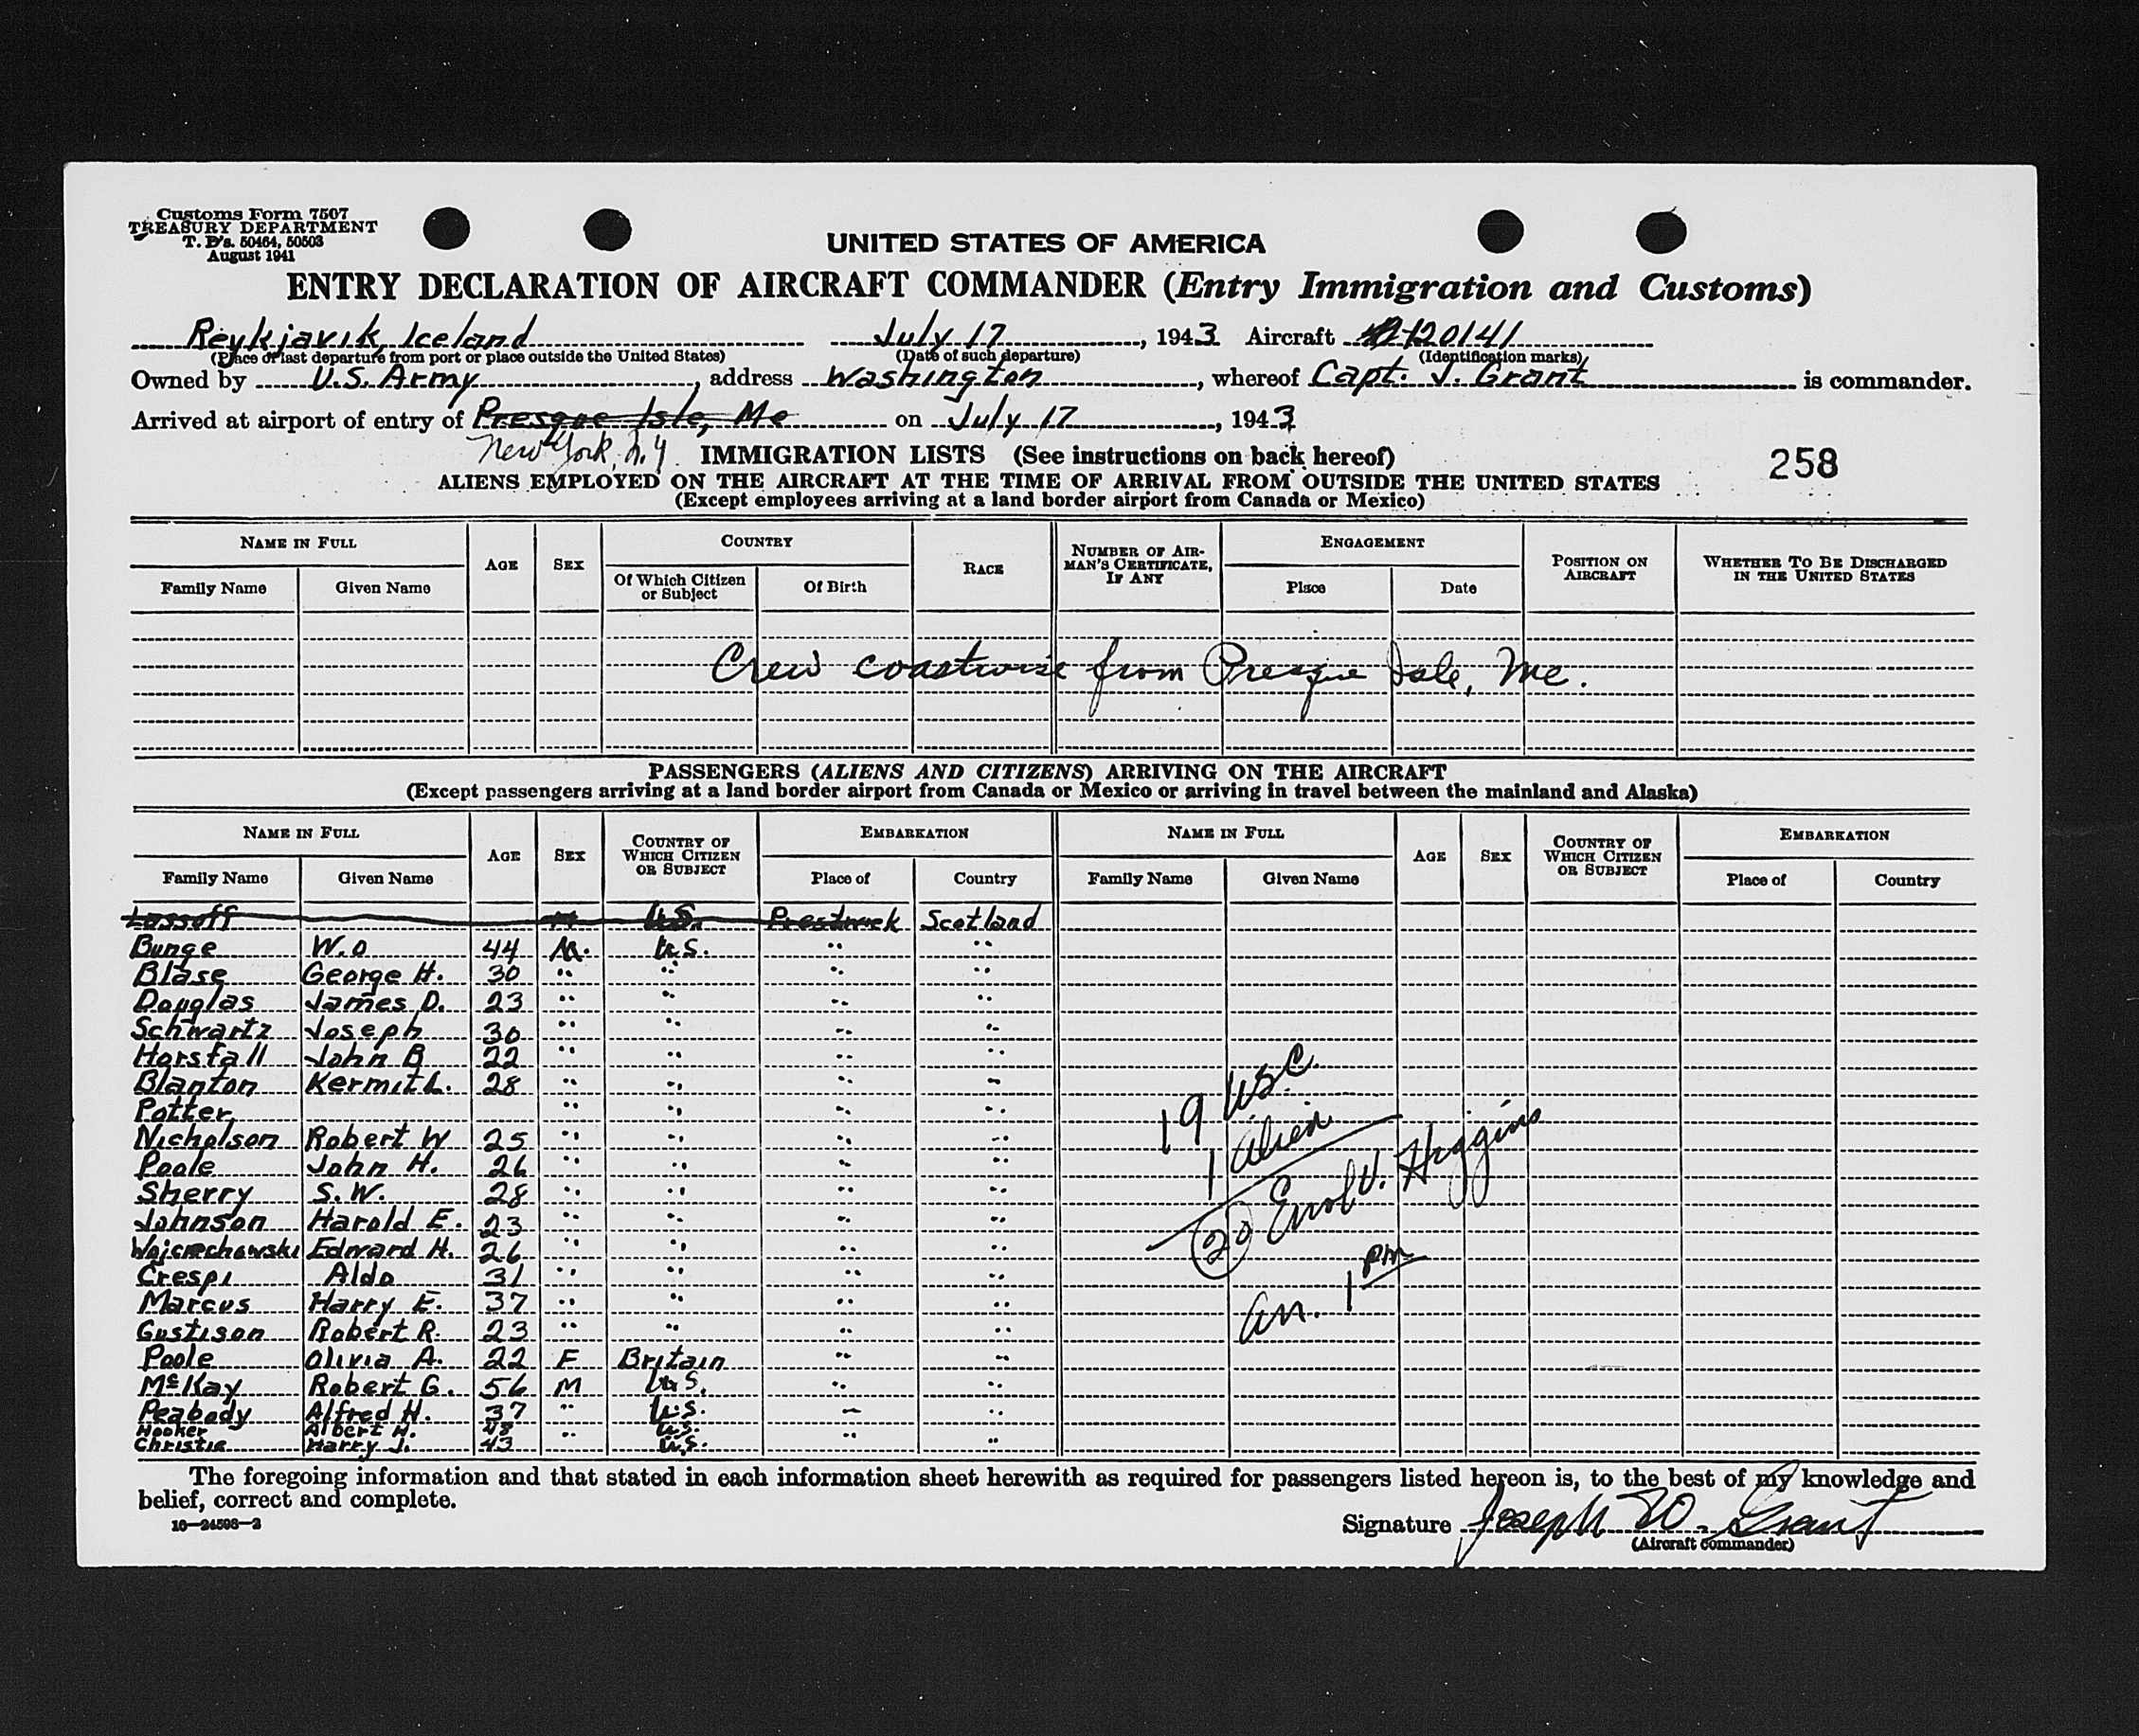 Customs Form 7507
TREASURY DEPARTMENT
T. D's. 50464, 50503
August 1941
UNITED STATES OF AMERICA
ENTRY DECLARATION OF AIRCRAFT COMMANDER (Entry Immigration and Customs)
Reykjavik, Iceland July 17, 1943 Aircraft 120141
(Place of last departure from port or place outside the United States) (Date of such departure) (Identification marks)
Owned by U.S. Army, address Washington, whereof Capt. J. Grant is commander.
Arrived at airport of entry of Presque Isle, Me on July 17, 1943
New York, N.Y. IMMIGRATION LISTS (See instructions on back hereof) 258
ALIENS EMPLOYED ON THE AIRCRAFT AT THE TIME OF ARRIVAL FROM OUTSIDE THE UNITED STATES
(Except employees arriving at a land border airport from Canada or Mexico)
NAME IN FULL AGE SEX COUNTRY RACE NUMBER OF AIRMAN'S CERTIFICATE, IF ANY ENGAGEMENT POSITION ON AIRCRAFT WHETHER TO BE DISCHARGED IN THE UNITED STATES
Family Name Given Name Of Which Citizen or Subject Of Birth Place Date
Crew coastwise from Presque Isle, Me.
PASSENGERS (ALIENS AND CITIZENS) ARRIVING ON THE AIRCRAFT
(Except passengers arriving at a land border airport from Canada or Mexico or arriving in travel between the mainland and Alaska)
NAME IN FULL AGE SEX COUNTRY OF WHICH CITIZEN OR SUBJECT EMBARKATION NAME IN FULL AGE SEX COUNTRY OF WHICH CITIZEN OR SUBJECT EMBARKATION
Family Name Given Name Place of Country Family Name Given Name Place of Country
Lassoff M U.S. Prestwick Scotland
Bunge W.O 44 M. U.S. " "
Blase George H. 30 " " " "
Douglas James D. 23 " " " "
Schwartz Joseph 30 " " " "
Horsfall John B 22 " " " "
Blanton Kermit L. 28 " " " "
Potter " " " "
Nicholson Robert W 25 " " " "
Poole John H. 26 " " " "
Sherry S.W. 28 " " " "
Johnson Harold E. 23 " " " "
Wojciechowski Edward H. 26 " " " "
Crespi Aldo 31 " " " "
Marcus Harry E. 37 " " " "
Gustison Robert R. 23 " " " "
Poole Olivia A. 22 F Britain " "
McKay Robert G. 56 M U.S. " "
Peabody Alfred H. 37 " U.S. " "
Hooker Albert H. 48 " U.S. " "
Christie Harry J. 43 U.S. "
19 USC.
1 Alien
20 Errol V. Higgins
Arr. 1 pm
The foregoing information and that stated in each information sheet herewith as required for passengers listed hereon is, to the best of my knowledge and
belief, correct and complete.
16—24598-2
Signature Joseph W. Grant
(Aircraft commander)